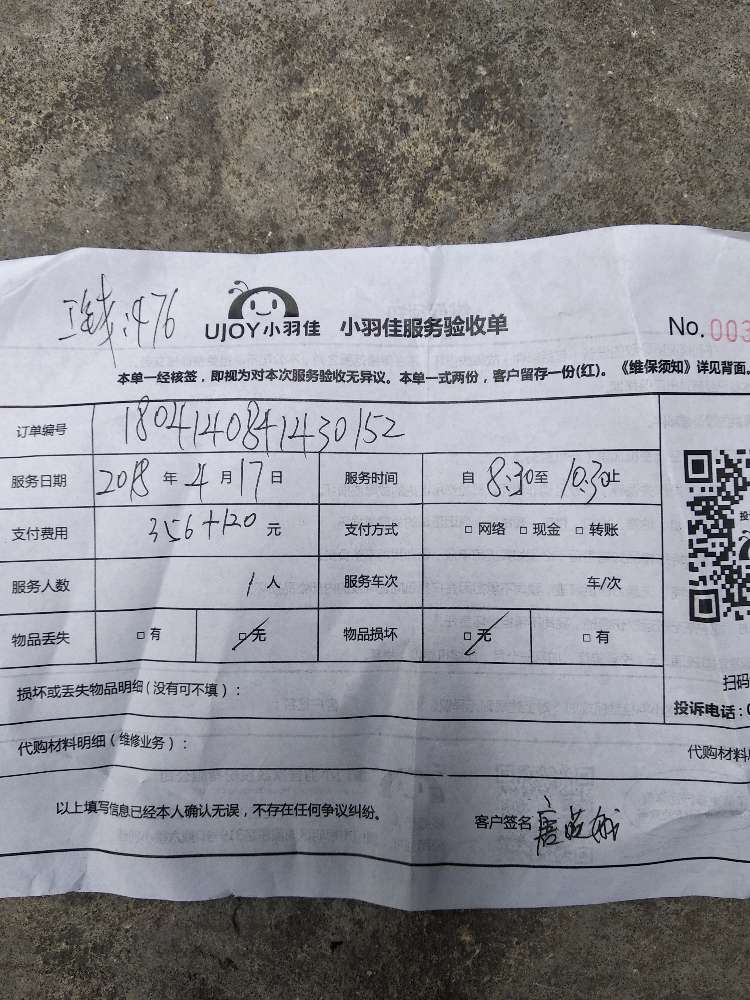 476
UJOY小羽佳 小羽佳服务验收单
No.003
本单一经核签，即视为对本次服务验收无异议。本单一式两份，客户留存一份(红)。《维保须知》详见背面。
订单编号 1804140841430152
服务日期 2018 年 4 月 17 日 服务时间 自 8:30 至 10:30 止
支付费用 356+120 元 支付方式 □ 网络 □ 现金 □ 转账
服务人数 1 人 服务车次 车/次
物品丢失 □ 有 □ 无 物品损坏 □ 无 □ 有
损坏或丢失物品明细(没有可不填)：
扫码
投诉电话:0
代购材料明细(维修业务)：
代购材料
以上填写信息已经本人确认无误，不存在任何争议纠纷。
客户签名 唐